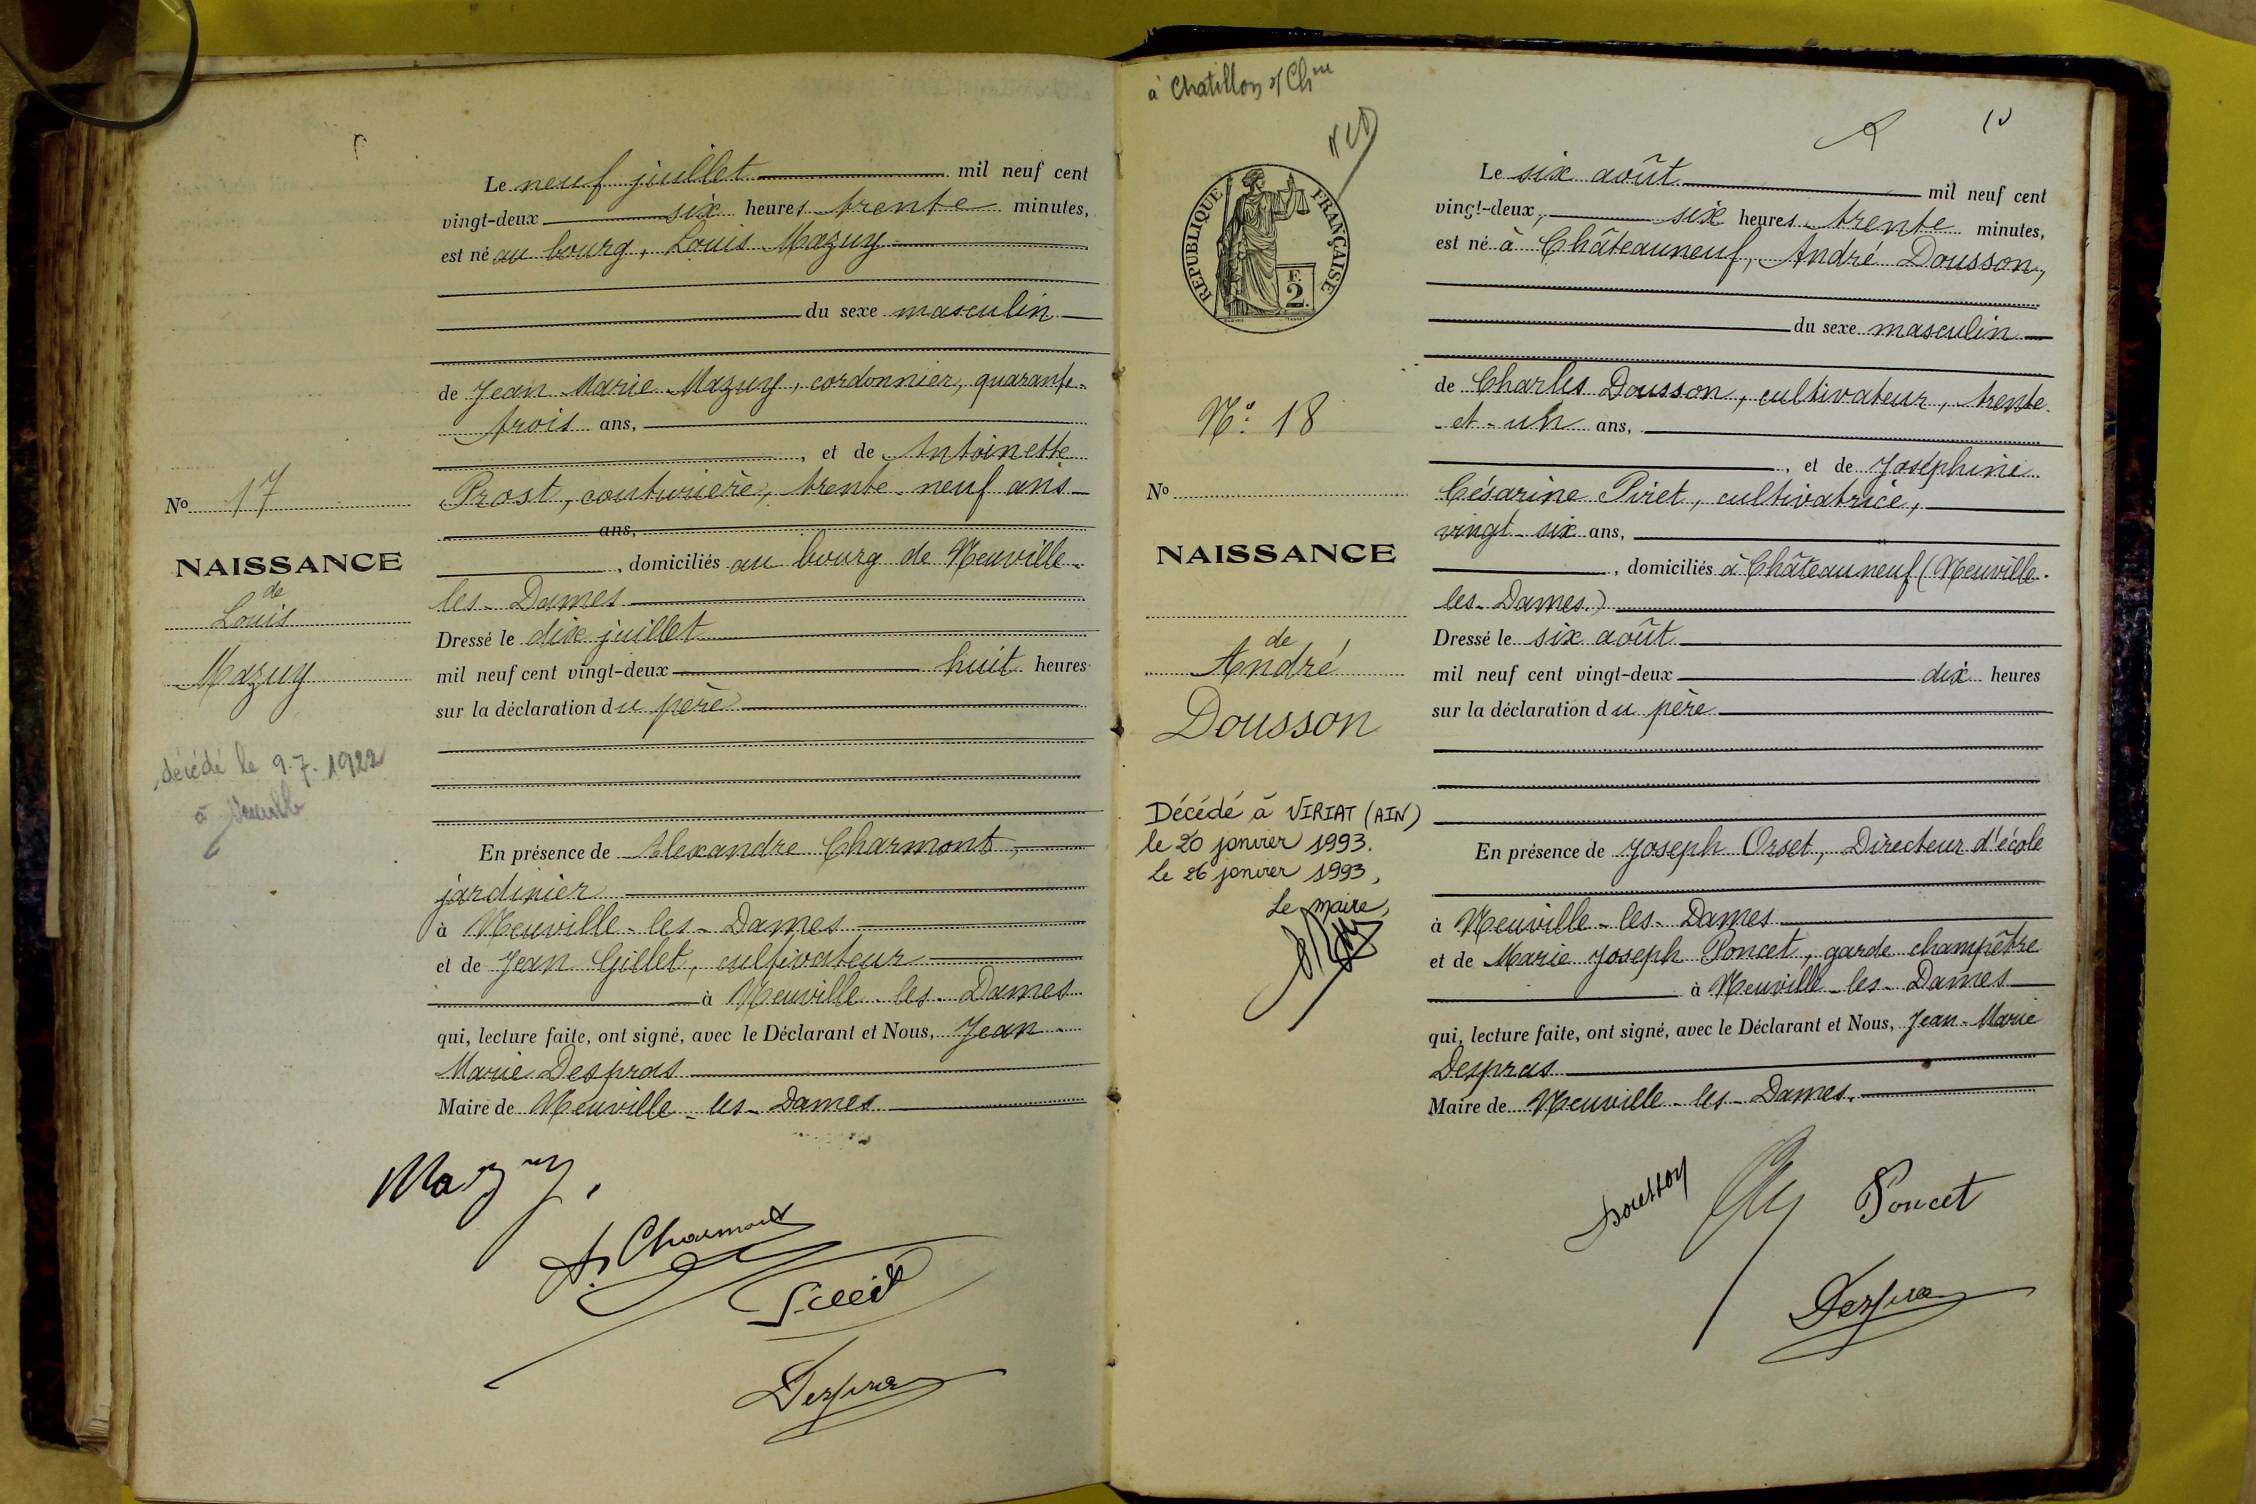 Le neuf juillet mil neuf cent
vingt-deux six heures trente minutes,
est né au bourg, Louis Mazuy
du sexe masculin
de Jean Marie Mazuy, cordonnier, quarante-
trois ans,
, et de Antoinette
Prost, couturière, trente-neuf ans
ans,
, domiciliés au bourg de Neuville-
les-Dames
Dressé le dix juillet
mil neuf cent vingt-deux huit heures
sur la déclaration du père
En présence de Alexandre Charmont,
jardinier
à Neuville-les-Dames
et de Jean Gillet, cultivateur
à Neuville-les-Dames
qui, lecture faite, ont signé, avec le Déclarant et Nous, Jean-
Marie Despras
Maire de Neuville-les-Dames
No 17
NAISSANCE
de
Louis
Mazuy
décédé le 9.7.1922
à Neuville
Mazuy.
A. Charmont
Despras
à Chatillon s/ Chne
RÉPUBLIQUE FRANÇAISE
F.
2.
No: 18
No
NAISSANCE
de
André
Dousson
Décédé à VIRIAT (AIN)
le 20 janvier 1993.
le 26 janvier 1993,
Le maire,
Le six août mil neuf cent
vingt-deux, six heures trente minutes,
est né à Châteauneuf, André Dousson,
du sexe masculin
de Charles Dousson, cultivateur, trente-
-et-un ans,
, et de Joséphine
Césarine Piret, cultivatrice,
vingt-six ans,
, domiciliés à Châteauneuf (Neuville-
les-Dames)
Dressé le six août
mil neuf cent vingt-deux dix heures
sur la déclaration du père
En présence de Joseph Orset, Directeur d'école
à Neuville-les-Dames
et de Marie Joseph Poncet, garde champêtre
à Neuville-les-Dames
qui, lecture faite, ont signé, avec le Déclarant et Nous, Jean-Marie
Despras
Maire de Neuville-les-Dames.
Dousson
Poncet
Despras